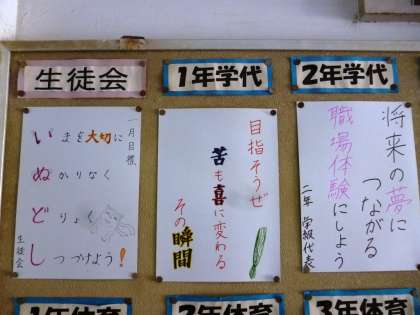 生徒会
1年学代
2年学代
一月目標
いまを大切に
ぬかりなく
どりょく
しつづけよう!
生徒会
目指そうぜ
苦も喜に変わる
その瞬間
将来の夢に
つながる
職場体験にしよう
二年 学級代表
1年体育
2年体育
3年体育